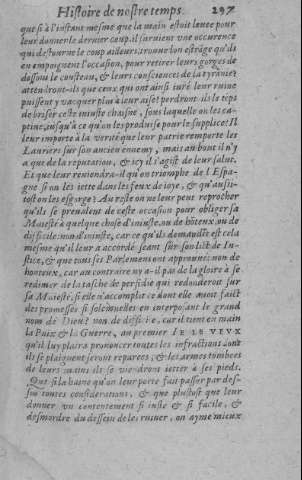 Histoire de nostre temps. 297
que si à l'instant mesme que la main estoit leuee pour
leur donner le dernier coup, il suruient vne occurence
qui destourne le coup ailleurs, trouue lon estrãge qu'ils
en empoignent l'occasion, pour retirer leurs gorges de
dessous le cousteau, & leurs consciences de la tyrãnie?
attendront-ils que ceux qui ont ainsi iuré leur ruine
puissent y vacquer plus à leur aise? perdront-ils le tẽps
de briser ceste iniuste chaisne, sous laquelle on les ca-
ptiue, iusqu'à ce qu'on les produise pour le supplice? Il
leur importe à la verité que leur patrie remporte les
Lauriers sur son ancien ennemy, mais au bout il n'y
a que de la reputation, & icy il s'agist de leur salut.
Et que leur reuiendra-il qu'on triomphe de l'Espa-
gne si on les iette dans les feux de ioye, & qu'aussi-
tost on les esgorge? Au reste on ne leur peut reprocher
qu'ils se preualent de ceste occasion pour obliger sa
Maiesté à quelque chose d'iniuste, ou de hõteux, ou de
difficile: non d'iniuste, car ce qu'ils demandẽt est cela
mesme qu'il leur a accordé seant sur son lict de Iu-
stice, & que tous ses Parlemens ont approuué: non de
honteux, car au contraire n'y a-il pas de la gloire à se
redimer de la tasche de perfidie qui redonderoit sur
sa Maiesté, si elle n'accomplit ce dont elle auoit faict
des promesses si solennelles en interposant le grand
nom de Dieu? non de difficile, car il tient en main
la Paix & la Guerre, au premier IE LE VEVX
qu'il luy plaira prononcer toutes les infractions dont
ils se plaignent seront reparees, & les armes tombees
de leurs mains ils se viendront ietter à ses pieds.
Que si la haine qu'on leur porte fait passer par des-
sus toutes considerations, & que plustost que leur
donner vn contentement si iuste & si facile, &
desmordre du dessein de les ruiner, on ayme mieux